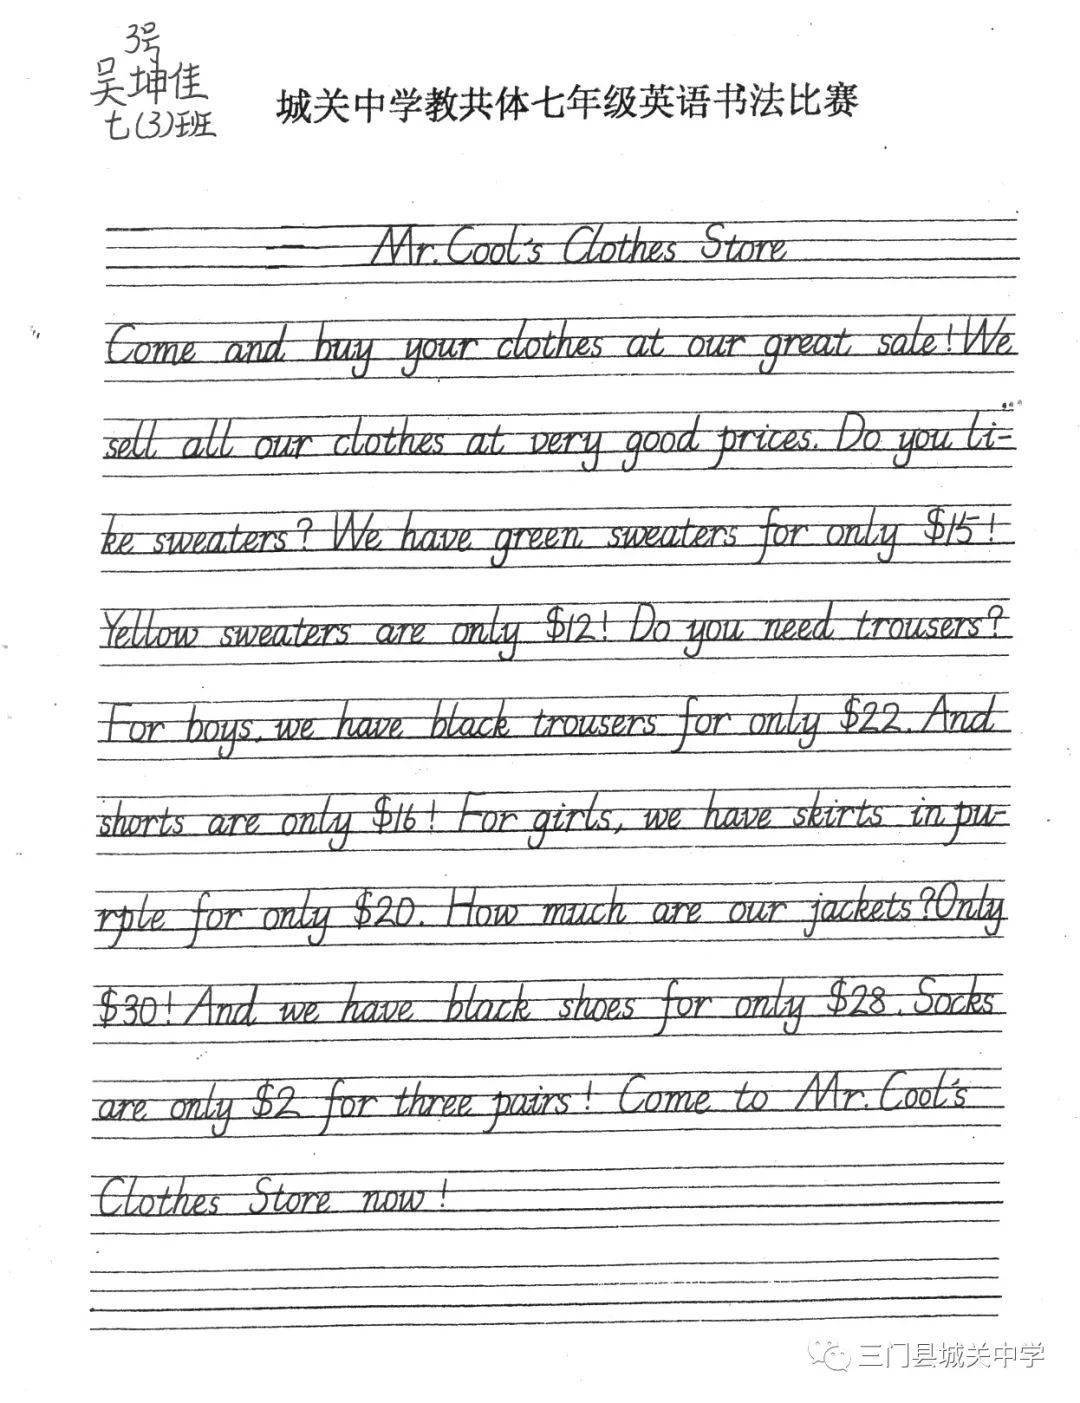 3号
吴坤佳
七(3)班
城关中学教共体七年级英语书法比赛
Mr. Cool's Clothes Store
Come and buy your clothes at our great sale! We
sell all our clothes at very good prices. Do you li-
ke sweaters? We have green sweaters for only $15!
Yellow sweaters are only $12! Do you need trousers?
For boys, we have black trousers for only $22. And
shorts are only $16! For girls, we have skirts in pu-
rple for only $20. How much are our jackets? Only
$30! And we have black shoes for only $28. Socks
are only $2 for three pairs! Come to Mr. Cool's
Clothes Store now!
三门县城关中学